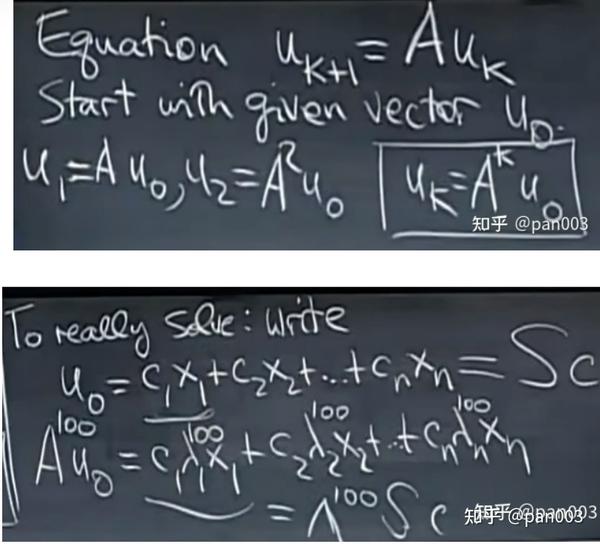 Equation u_{K+1} = A u_K
Start with given vector u_0.
u_1 = A u_0, u_2 = A^2 u_0 u_K = A^K u_0
知乎 @pan003
To really solve: write
u_0 = c_1 x_1 + c_2 x_2 + ... + c_n x_n = S c
A^{100} u_0 = c_1 λ_1^{100} x_1 + c_2 λ_2^{100} x_2 + ... + c_n λ_n^{100} x_n
= Λ^{100} S c
知乎 @pan003
知乎 @pan003